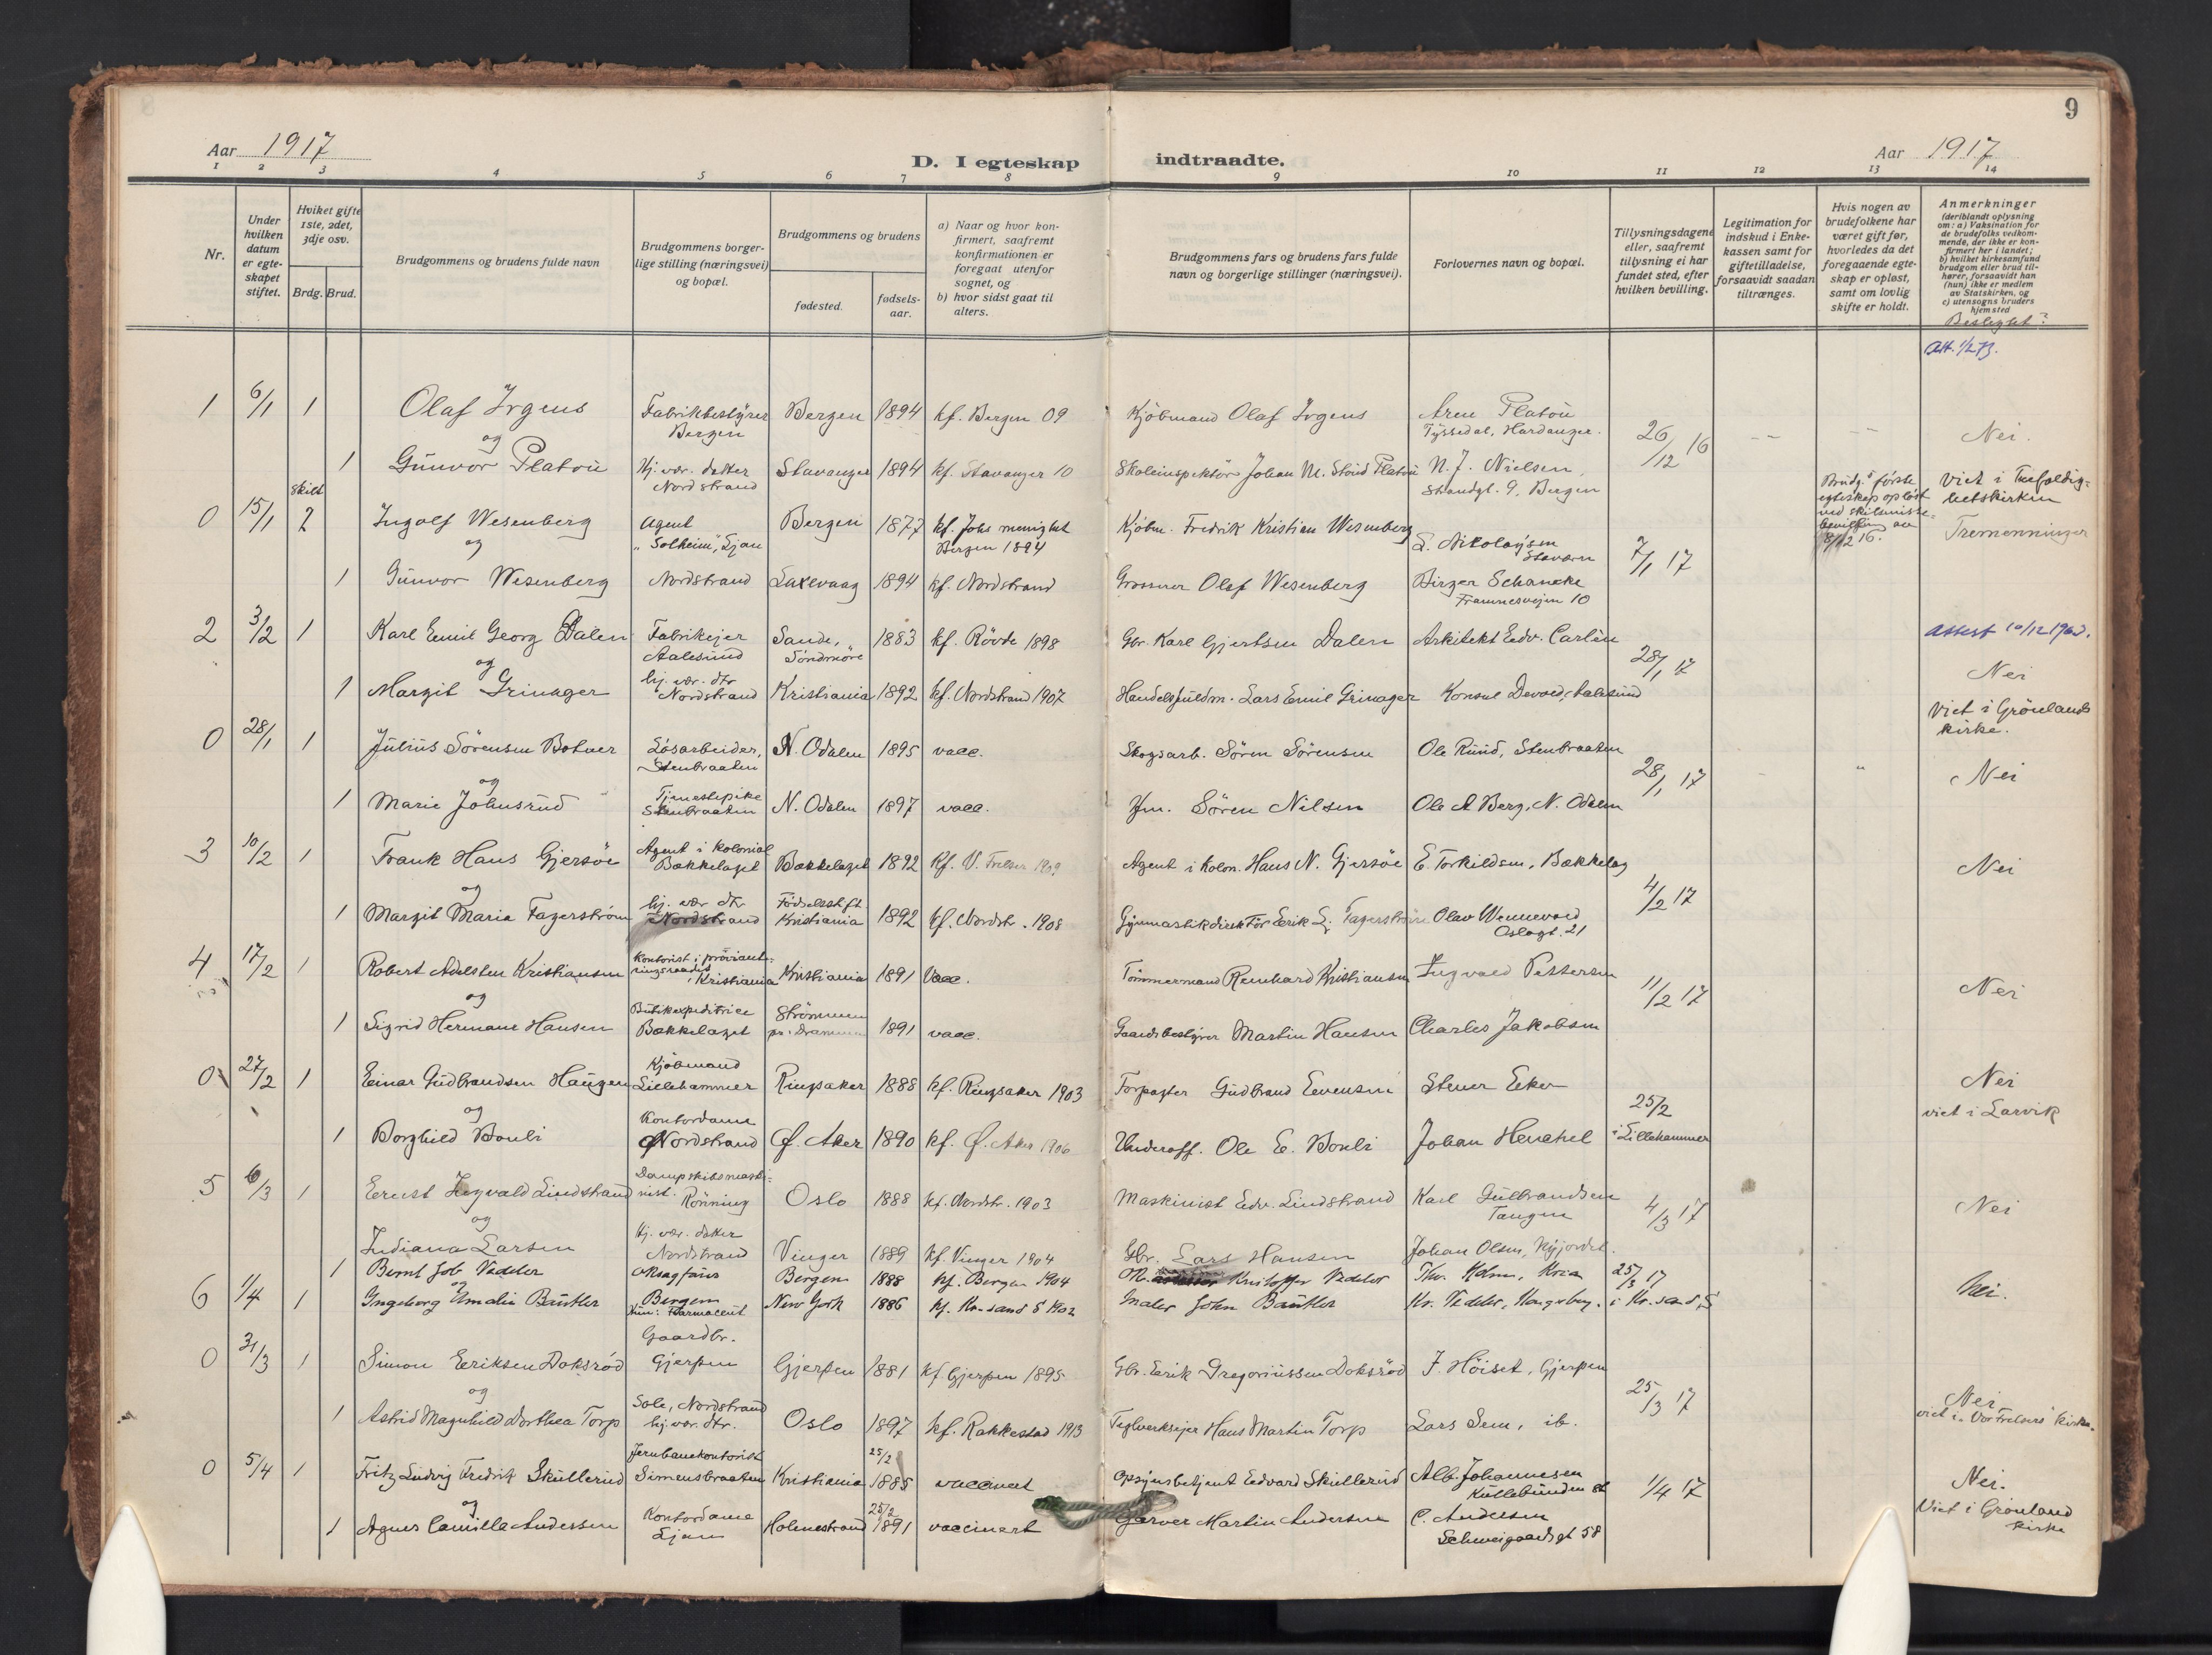 9
Aar 1917
D. I egteskap indtraadte.
Aar 1917
1 2 3 4 5 6 7 8 9 10 11 12 13 14
Nr.
Under hvilken datum er egteskapet stiftet.
Hviket gifte 1ste, 2det, 3dje osv.
Brdg. Brud.
Brudgommens og brudens fulde navn
Brudgommens borgerlige stilling (næringsvei) og bopæl.
Brudgommens og brudens
fødested.
fødselsaar.
a) Naar og hvor konfirmert, saafremt konfirmationen er foregaat utenfor sognet, og
b) hvor sidst gaat til alters.
Brudgommens fars og brudens fars fulde navn og borgerlige stillinger (næringsvei).
Forlovernes navn og bopæl.
Tillysningsdagene eller, saafremt tillysning ei har fundet sted, efter hvilken bevilling.
Legitimation for indskud i Enkekassen samt for giftetilladelse, forsaavidt saadan tiltrænges.
Hvis nogen av brudefolkene har været gift før, hvorledes da det foregaaende egteskap er opløst, samt om lovlig skifte er holdt.
Anmerkninger
(deriblandt oplysning om: a) Vaksination for de brudefolks vedkommende, der ikke er konfirmert her i landet; b) hvilket kirkesamfund brudgom eller brud tilhører, forsaavidt han (hun) ikke er medlem av Statskirken, og c) utensogns bruders hjemsted
Beslegtet?
Att. 1/2 73.
1 6/1 1 Olaf Irgens Fabrikbestyrer Bergen Bergen 1894 kf. Bergen 09 Kjøbmand Olaf Irgens Tyssedal, Hardanger. 26/12 16 -- -- Nei.
og
1 Gunvor Platou Hj. vær. datter Nordstrand Stavanger 1894 kf. Stavanger 10 Skoleinspektør Johan M. Platou N. J. Nielsen, Strandgt. 9, Bergen Viet i Trefoldighetskirken
skilt
0 15/1 2 Ingolf Wesenberg Agent "Solheim", Ljan Bergen 1877 kf. Johs menighet Bergen 1894 Kjøbm. Fredrik Kristian Wesenberg L. Nikolaysen Stavern 7/1 17 Brudg.s første egteskap opløst ved skilsmissebevilling av 8/12 16. Tremenninger
og
1 Gunvor Wesenberg Nordstrand Laxevaag 1894 kf. Nordstrand Grosserer Olaf Wesenberg Birger Schancke Framnesveien 10
2 3/2 1 Karl Emil Georg Dalen Fabrikejer Aalesund Sande, Søndmøre 1883 kf. Rövde 1898 Gbr. Karl Gjertsen Dalen Arkitekt Edv. Carlèn 28/1 17 Attest 10/12 19
og
1 Margit Grinager hj. vær. dtr Nordstrand Kristiania 1892 kf. Nordstrand 1907 Handelsfuldm. Lars Emil Grinager Konsul Devold, Aalesund Nei
0 28/1 1 Julius Sørensen Botner Løsarbeider, Stenbraaten N. Odalen 1895 vacc. Skogsarb. Søren Sørensen Ole Rund, Stenbraaten 28/1 17 " Viet i Grönlands kirke.
og
1 Marie Johnsrud Tjenestepike Stenbraaten N. Odalen 1897 vacc. Hm. Søren Nilsen Ole A Berg, N. Odalen Nei
3 10/2 1 Frank Hans Gjersøe Agent i kolonial Bækkelaget Bækkelaget 1892 kf. V. Frelser 1909 Agent i kolon. Hans N. Gjersøe E Torkildsen, Bækkelag 4/2 17 Nei
og
1 Margit Maria Fagerström hj. vær dtr Nordstrand Födselsstift. Kristiania 1892 kf. Nordstr. 1908 Gymnastikdirektör Erik L. Fagerström Olav Wennevold Oslogt. 21
4 17/2 1 Robert Adelsten Kristiansen Kontorist i provianteringsraadet, Kristiania Kristiania 1891 Vacc. Tømmermand Reinhard Kristiansen Ingvald Pettersen 11/2 17 Nei
og
1 Sigrid Hermane Hansen Butikexpeditrice Bækkelaget Strømmen pr. Drammen 1891 vacc. Gaardsbestyrer Martin Hansen Charles Jakobsen
0 27/2 1 Einar Gudbrandsen Haugen Kjöbmand Lillehammer Ringsaker 1888 kf. Ringsaker 1903 Forpagter Gudbrand Evensen Stener Eker 25/2 i Lillehammer Nei
og
1 Borghild Bonli Kontordame Nordstrand Ø. Aker 1890 kf. Ø. Aker 1906 Underoff. Ole E. Bonli Johan Henchel viet i Larvik
5 6/3 1 Ernst Ingvald Lindstrand Dampskibsmaskinist. Rönning Oslo 1888 kf. Nordstr. 1903 Maskinist Edv. Lindstrand Karl Gulbrandsen Tangen 4/3 17 Nei
og
1 Indiana Larsen Hj. vær. datter Nordstrand Vinger 1889 kf. Vinger 1904 Gbr. Lars Hansen Johan Olsen,
6 1/4 1 Bernt Job Vedeler Sagfører Bergen Bergen 1888 kf. Bergen 1904 Kristoffer Vedeler Thv. Holm, Kria 25/3 17 i Kr.sand S Nei.
og
Ingeborg Emalie Bäutler Farmaceut New York 1886 kf. Kr.sand S 1902 Maler John Bäutler Kr. Vedeler, Kongsberg.
0 31/3 1 Simon Eriksen Doksrød Gaardbr. Gjerpen Gjerpen 1881 kf. Gjerpen 1895 Gbr. Erik Gregoriussen Doksröd J. Höiset, Gjerpen 25/3 17 Nei
og
1 Astrid Magnhild Dorthea Torp Sole, Nordstrand hj. vær. dtr. Oslo 1897 kf. Rakkestad 1913 Teglverksejer Hans Martin Torp Lars Sem, ib. viet i "Vor Frelsers" kirke.
0 5/4 1 Fritz Ludvig Fredrik Skullerud Jernbanekontorist Simensbraaten Kristiania 25/2 1885 vaccinert Opsynsbetjent Edvard Skullerud Alb. Johannesen Kullebunden 1/4 17 Nei.
og
1 Agnes Camilla Andersen Kontordame Ljan Holmestrand 25/2 1891 vaccinert Garver Martin Andersen C. Andersen Schweigaards gt 58 Viet i Grönland kirke